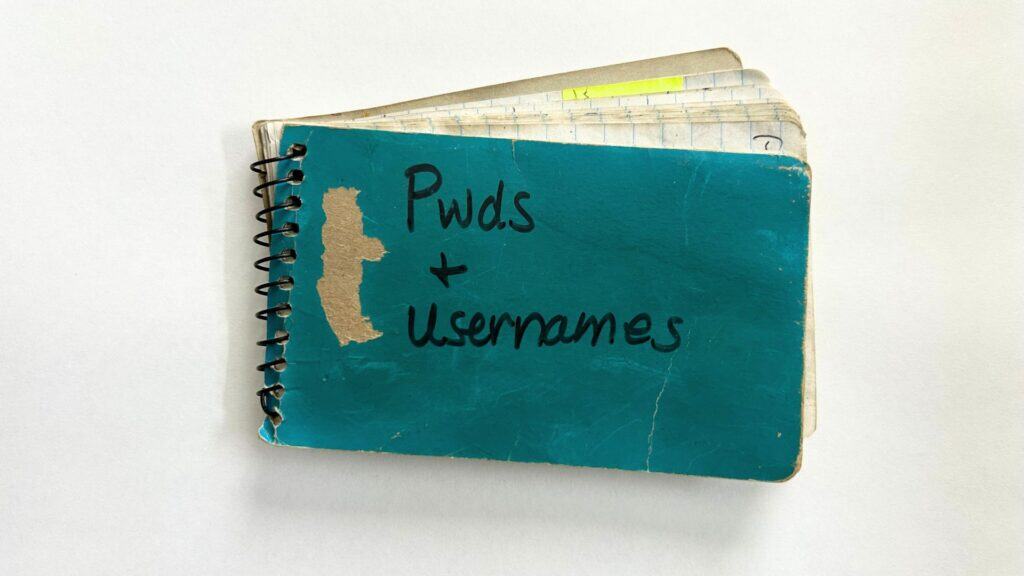 Pwds
+
Usernames